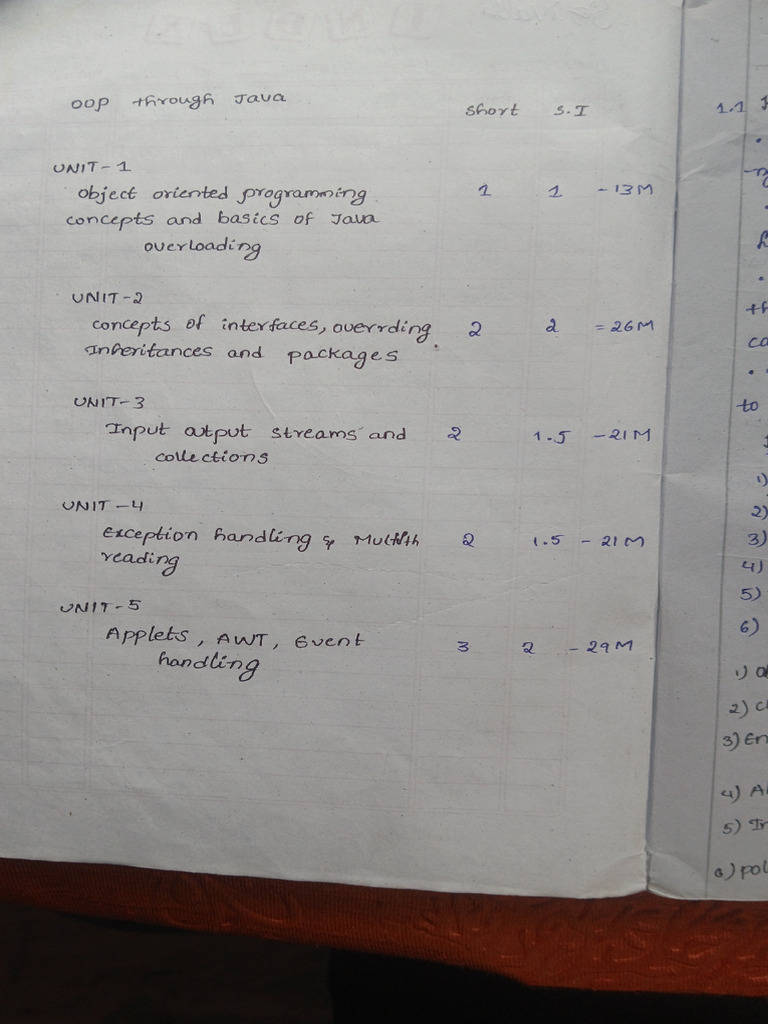 OOP through Java
Short S.I
UNIT-1
Object oriented programming 1 1 -13M
concepts and basics of Java
overloading
UNIT-2
concepts of interfaces, overrding 2 2 = 26M
Inheritances and packages
UNIT-3
Input output streams and 2 1.5 -21M
collections
UNIT-4
Exception handling & Multith 2 1.5 - 21M
reading
UNIT-5
Applets, AWT, Event 3 2 - 29M
handling
1.1
to
1)
2)
3)
4)
5)
6)
1)
2)
3)
4)
5)
6)